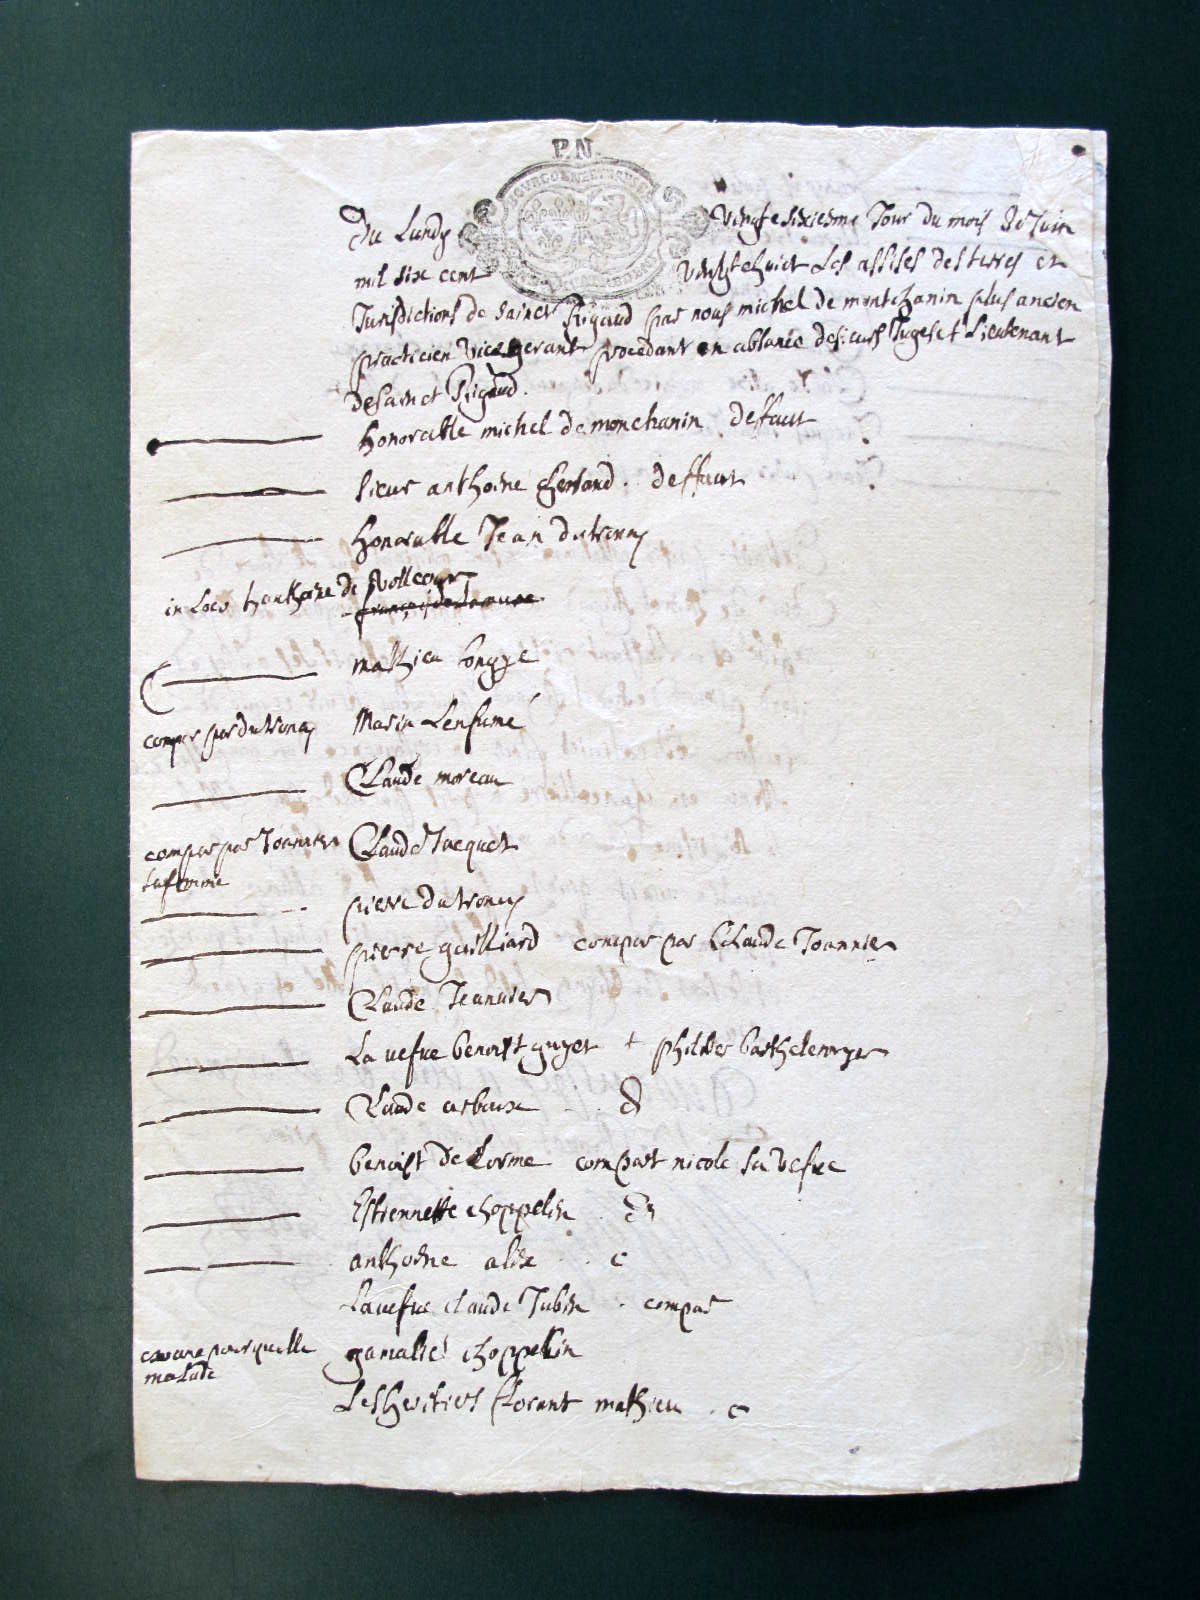 P.N.
BOURGOGNE ET BRESSE
Du Lundy vingt sixiesme Jour du mois De Juin
mil six cent vingt huict Les assises des terres et
Jurisdictions de Sainct Rigaud par nous michel de montchanin plus ancien
practicien vice gerant procedant en absance des sieurs Juges et Lieutenant
de Sainct Rigaud.
honorable michel de monchanin deffaut
sieur anthoine deffaut
honorable Jean dutroncy
in Loco de
mathieu
compar par dutroncy Marin Lenfumé
Claude moreau
compar par Joannier Claude Jacquet
sa femme
pierre dutroncy
pierre guilliard compar par Claude Joannier
Claude Jeannier
La vefve benoist guyet + philiber barthelemyer
Claude
benoist de Lorme compart nicole sa vefve
Estiennette choppelin
anthoine alix c
La vefve claude Jubin . compar
malade gamaliel choppelin
Les heritiers florant mathieu . c